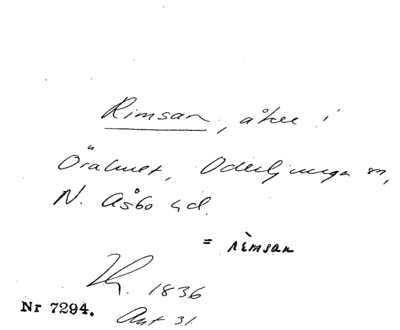 Rimsan, åker i
Öralmet, Oderljunga sn,
N. Åsbo hd.
= rimsan
1836
Nr 7294. Ant 31